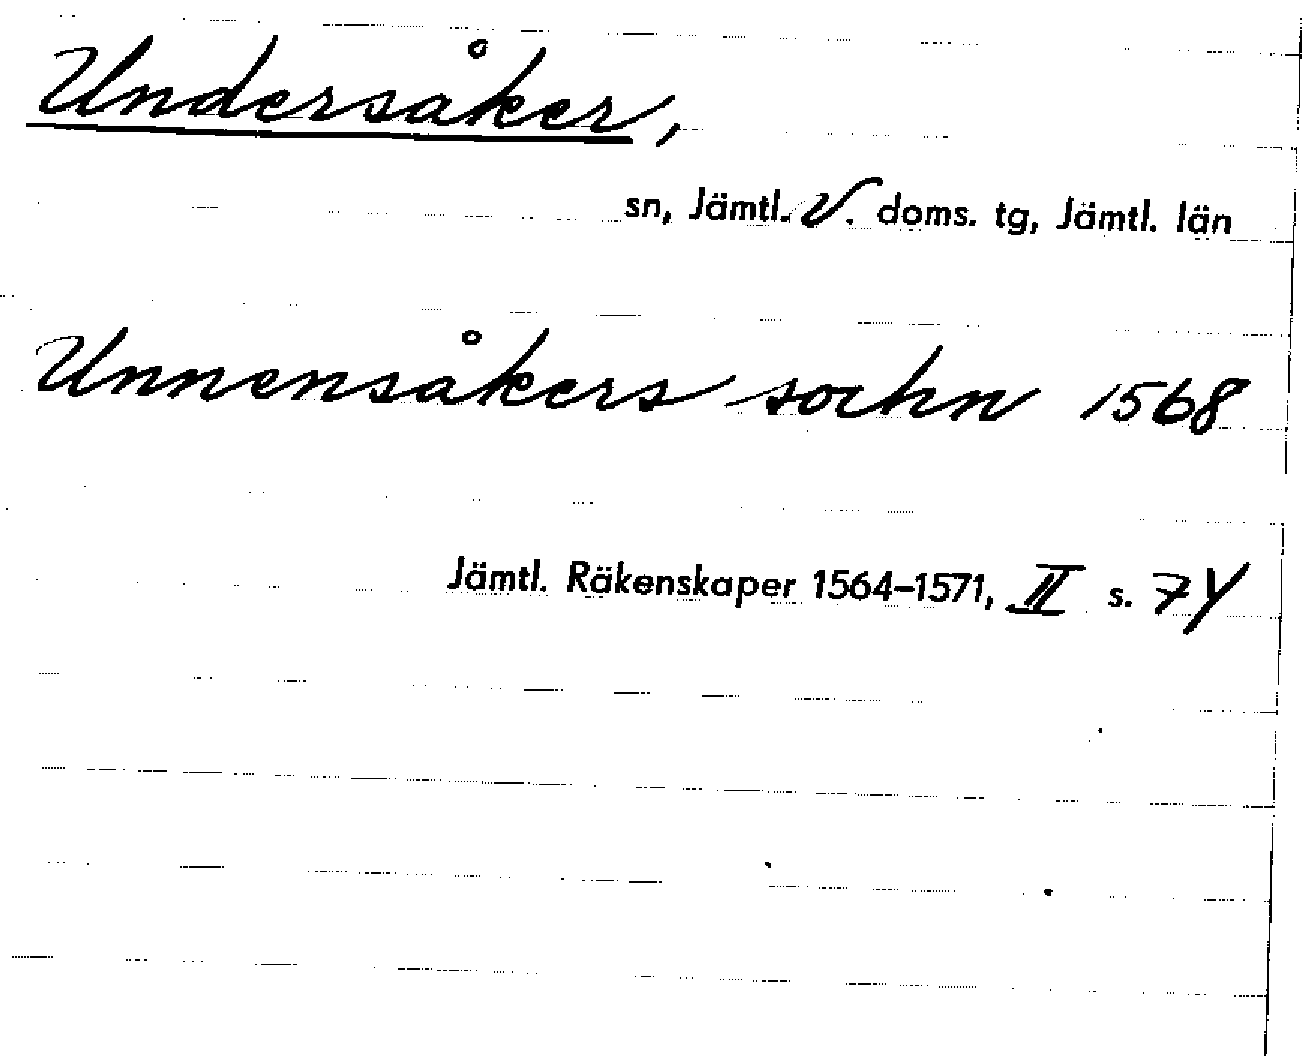 Undersåker,
sn, Jämtl. V. doms. tg, Jämtl. län
Unnensåkers sochn 1568
Jämtl. Räkenskaper 1564–1571, II s. 74